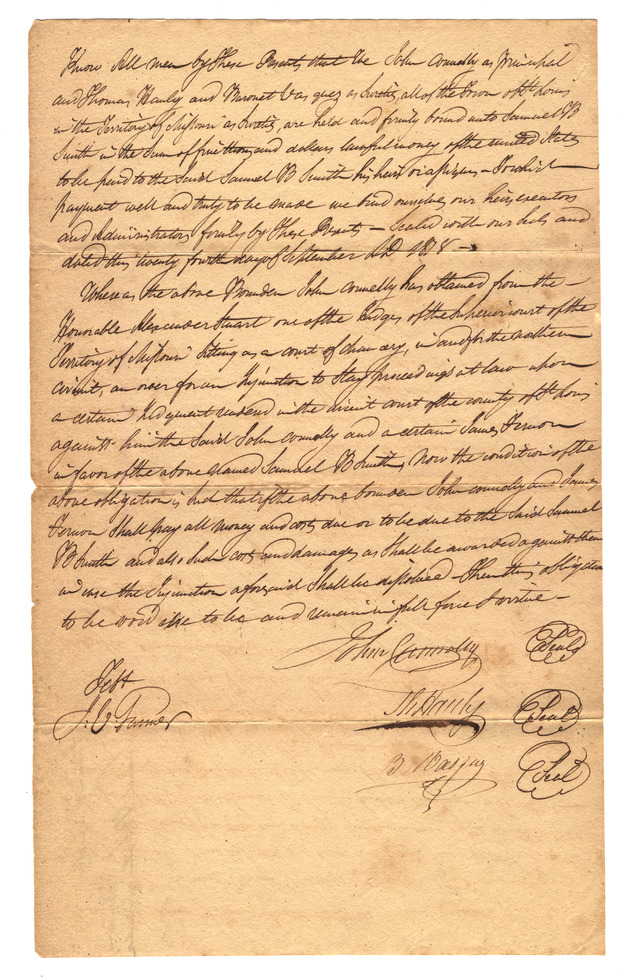 Know All men by These Presents that We John Connolly as Principal
and Thomas Hanly and Baronet Vasquez as Sureties, all of the Town of St Louis
in the Territory of Missouri as Sureties, are held and firmly bound unto Samuel B
Smith in the Sum of five thousand dollars lawful money of the united States
to be paid to the Said Samuel B Smith his heirs or assigns – To which
payment well and truly to be made we bind ourselves our heirs, executors
and administrators firmly by These Presents – Sealed with our Seals and
dated this twenty fourth day of September AD 1818 –
Whereas the above Bounden John Connelly has obtained from the –
Honorable Alexander Stuart one of the Judges of the Superior court of the
Territory of Missouri Sitting as a court of chancery, in and for the northern
circuit, an order for an Injunction to Stay proceedings at law upon
a certain Judgment rendered in the circuit court of the county of St Louis
against him the Said John Connolly and a certain James Vernon
in favor of the above Named Samuel B Smith, Now the condition of the
above obligation is Such that if the above bounden John Connolly and James
Vernon Shall pay all money and costs due or to be due to the Said Samuel
B Smith and also Such costs and damages as Shall be awarded against them
in case the Injunction aforesaid Shall be disolved – Then this obligation
to be void else to be and remain in full force & virtue –
John Connolly Seal
Test
Th Hanly Seal
J. V. Garnier
B Vasquez Seal